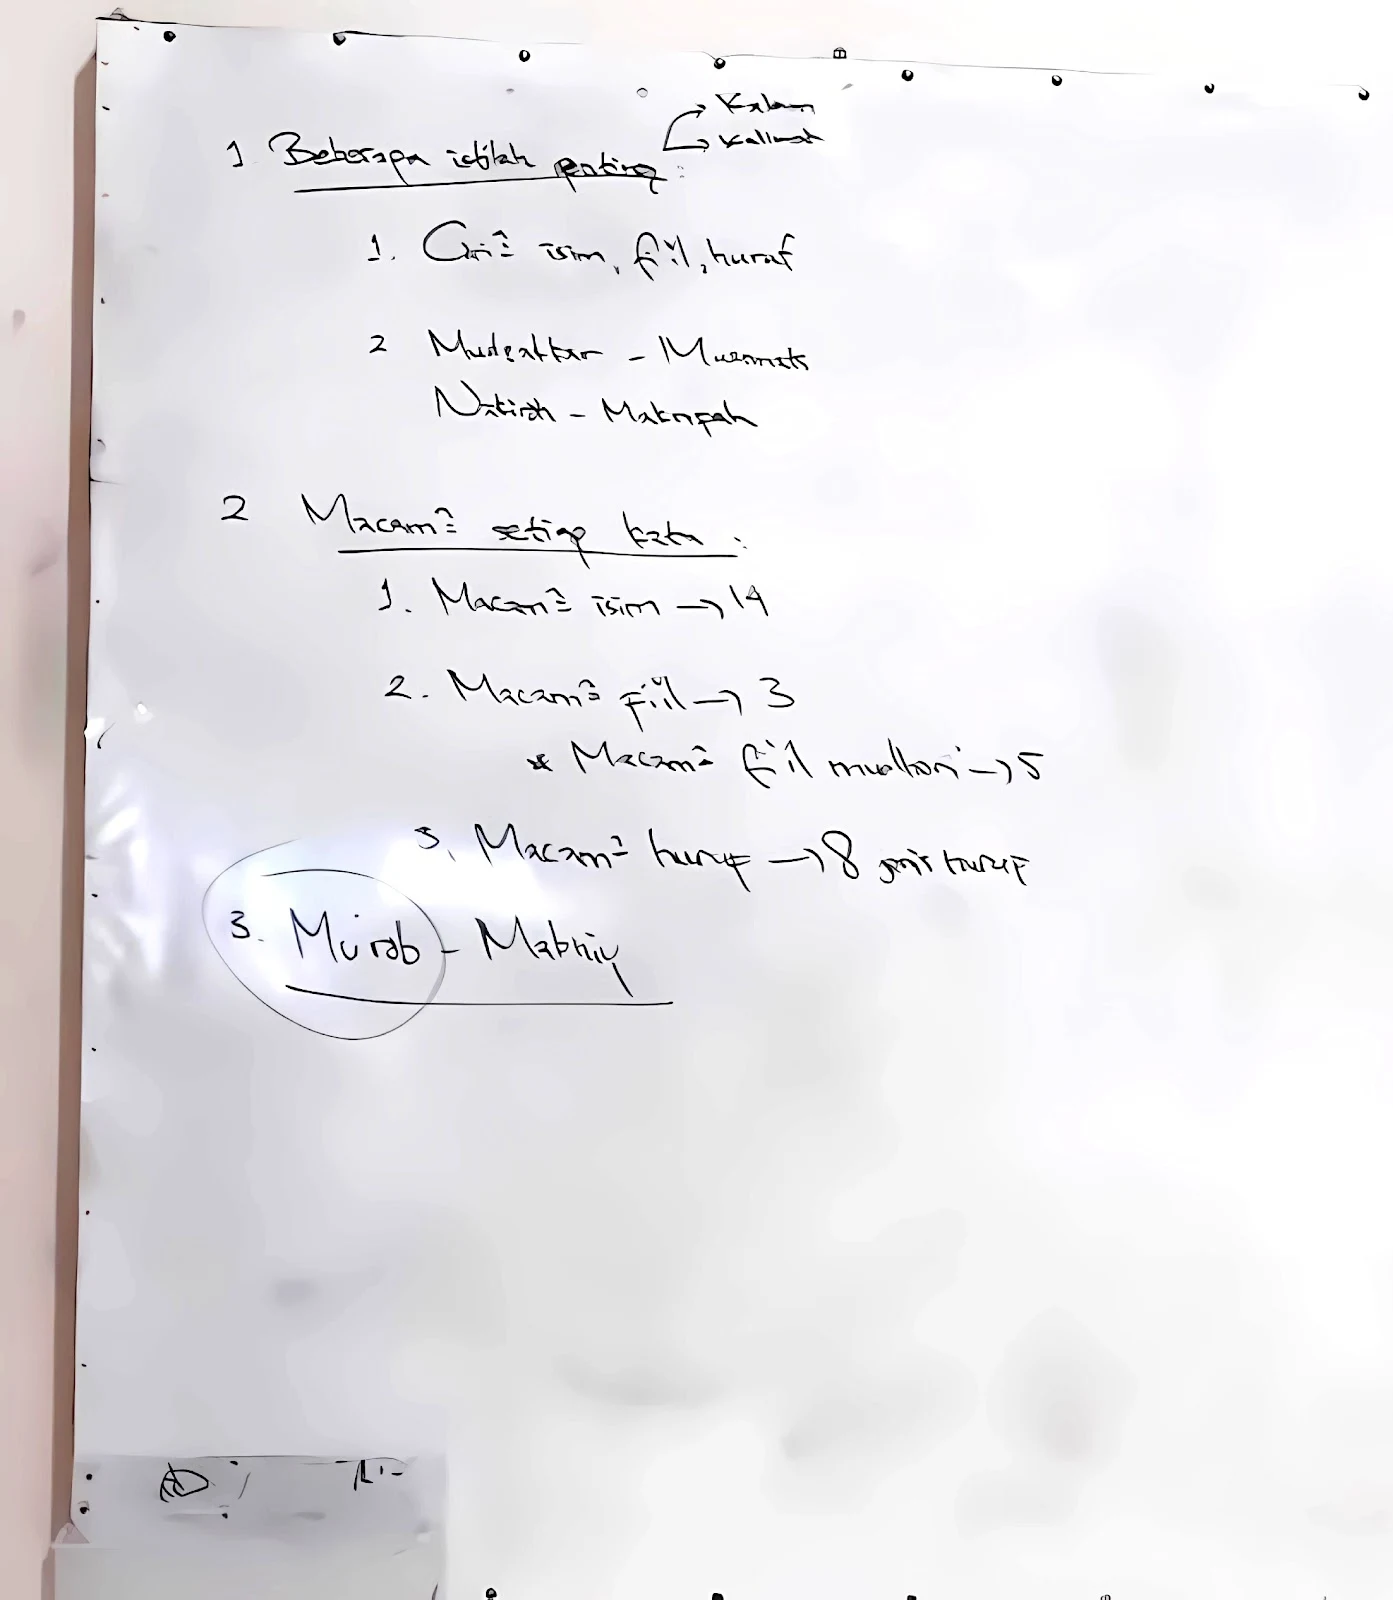 1 Beberapa istilah penting :
Kalam
Kalimat
1. Ciri² isim, fi'il, huruf
2 Mudzakkar - Muannats
Nakiroh - Makrifah
2 Macam² setiap kata :
1. Macam² isim → 14
2. Macam² fi'il → 3
* Macam² fi'il mudhori' → 5
3. Macam² huruf → 8 jenis huruf
3. Mu'rab - Mabniy